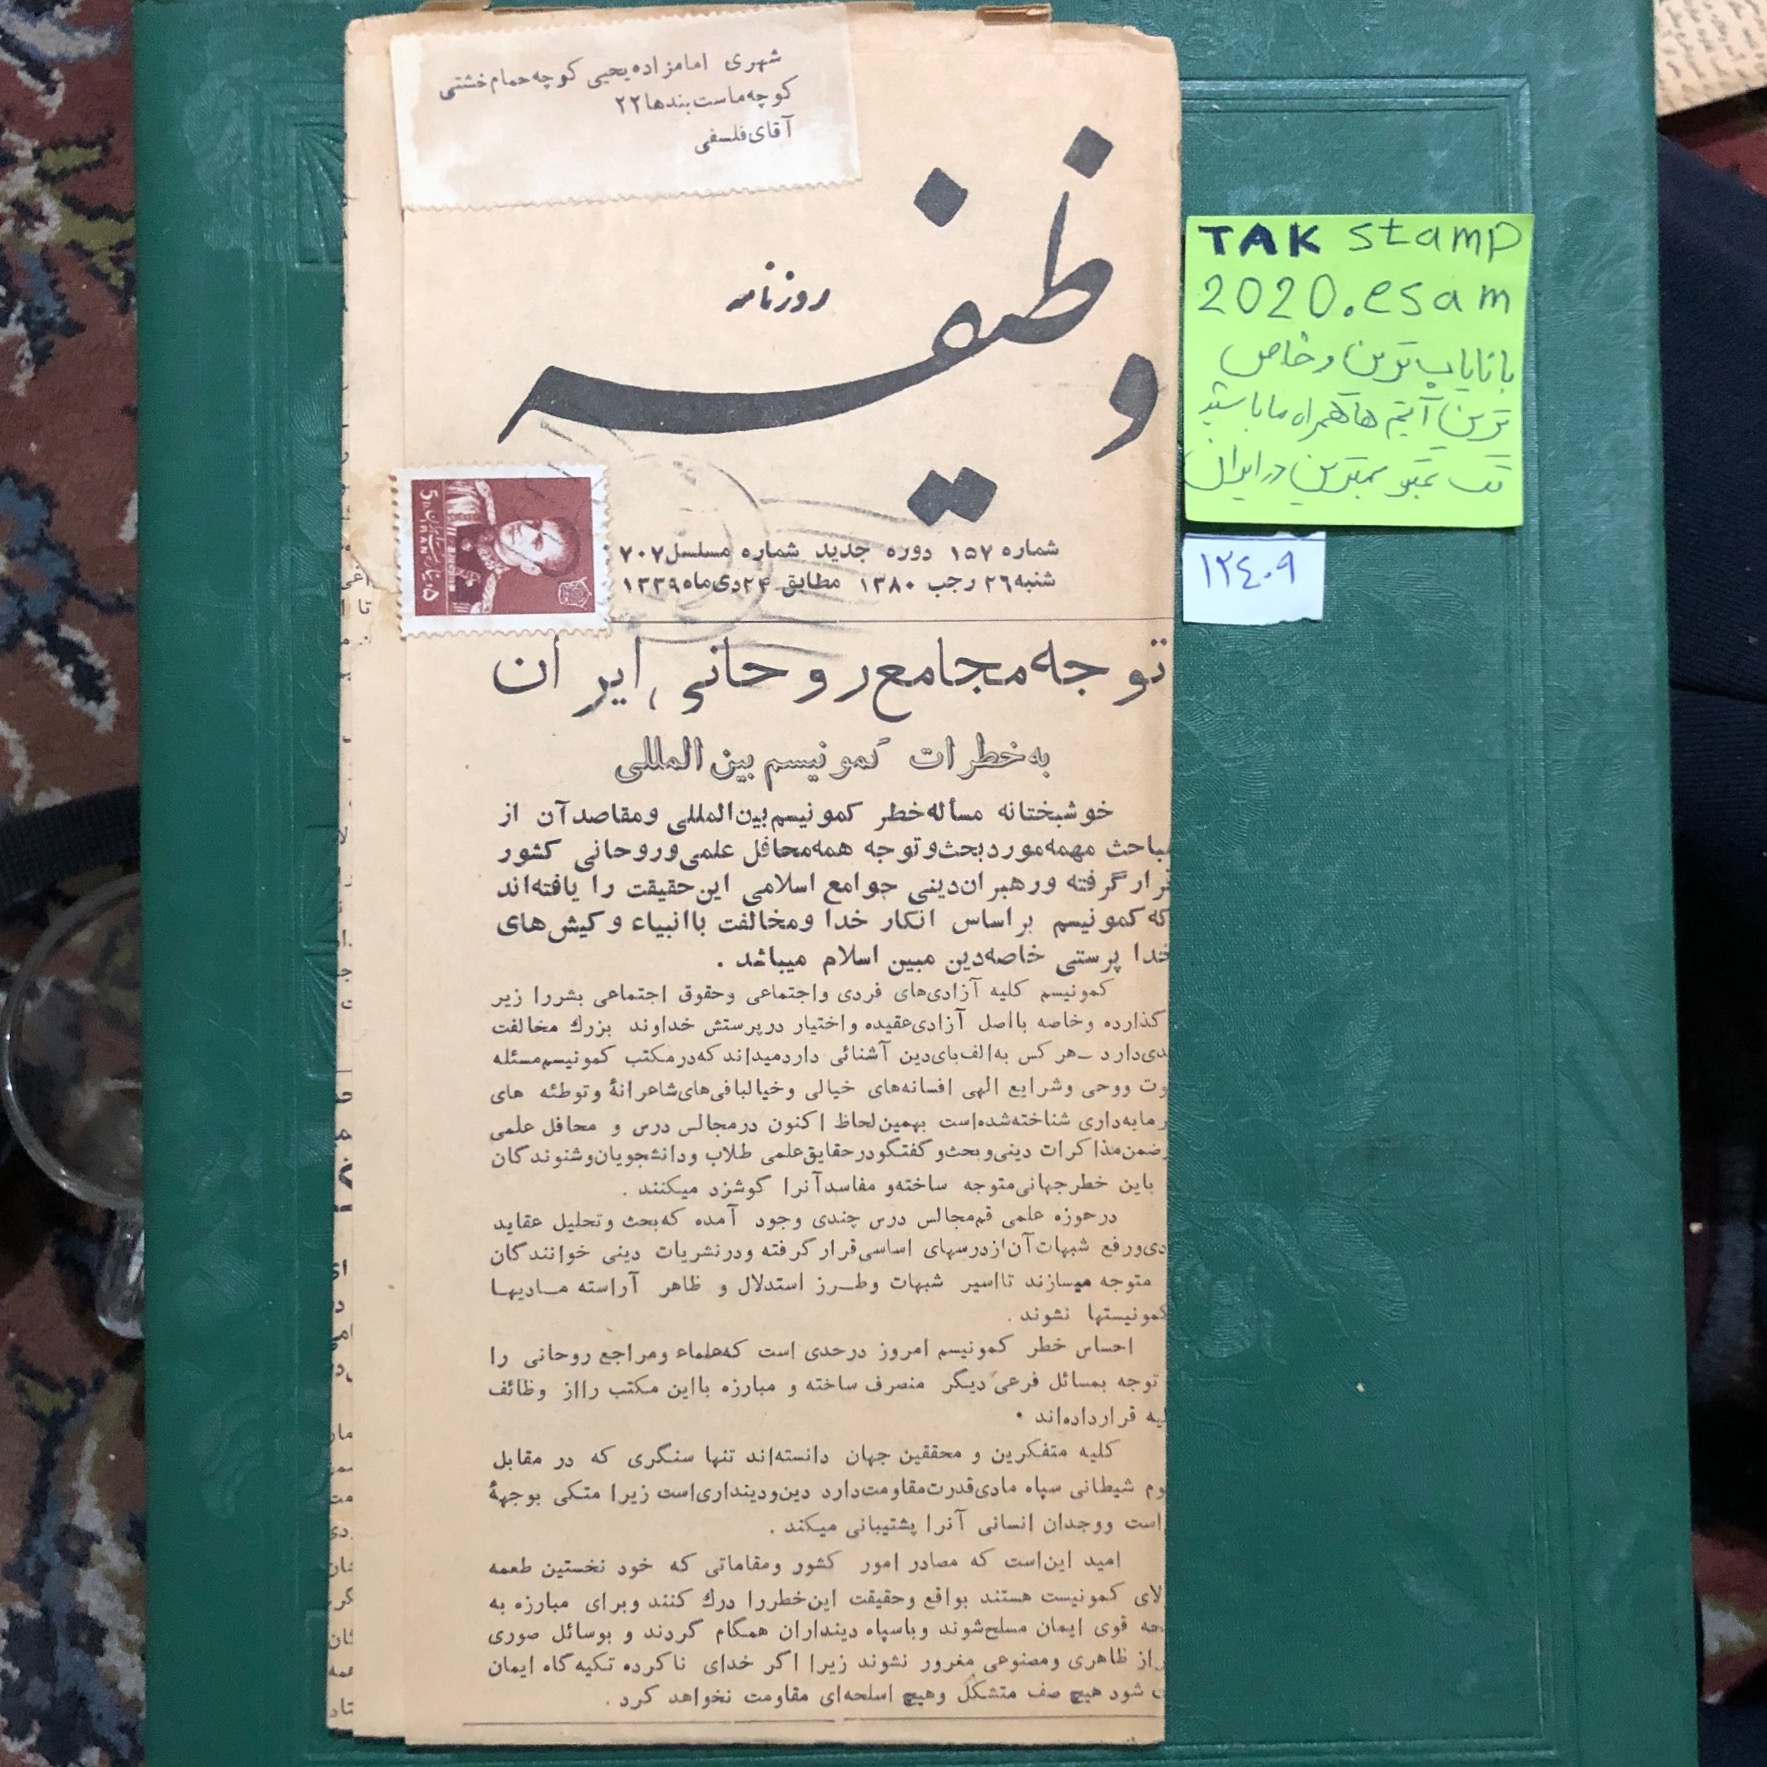 شهری امامزاده یحیی کوچه حمام خشتی
کوچه ماست بندها ۲۲
آقای فلسفی
روزنامه
وظیفه
شماره ۱۵۷ دوره جدید شماره مسلسل ۷۰۷
شنبه ۲۶ رجب ۱۳۸۰ مطابق ۲۴ دی ماه ۱۳۳۹
5 D.
IRAN
توجه مجامع روحانی ایران
به خطرات کمونیسم بین المللی
خوشبختانه مسأله خطر کمونیسم بین المللی و مقاصد آن از
مباحث مهمه مورد بحث و توجه همه محافل علمی و روحانی کشور
قرار گرفته و رهبران دینی جوامع اسلامی این حقیقت را یافته اند
که کمونیسم بر اساس انکار خدا و مخالفت با انبیاء و کیش های
خدا پرستی خاصه دین مبین اسلام میباشد .
کمونیسم کلیه آزادی های فردی و اجتماعی و حقوق اجتماعی بشر را زیر
گذارده و خاصه با اصل آزادی عقیده و اختیار در پرستش خداوند بزرك مخالفت
دی دارد ــ هر کس به الف بای دین آشنائی دارد میداند که در مکتب کمونیسم مسئله
وت و وحی و شرایع الهی افسانه های خیالی و خیالبافی های شاعرانهٔ و توطئه های
رمایه داری شناخته شده است بهمین لحاظ اکنون در مجالس درس و محافل علمی
ضمن مذاکرات دینی و بحث و گفتگو در حقایق علمی طلاب و دانشجویان و شنوندگان
باین خطر جهانی متوجه ساخته و مفاسد آنرا گوشزد میکنند .
در حوزه علمی قم مجالس درس چندی وجود آمده که بحث و تحلیل عقاید
دی و رفع شبهات آن از درسهای اساسی قرار گرفته و در نشریات دینی خوانندگان
متوجه میسازند تا اسیر شبهات و طرز استدلال و ظاهر آراسته مادیها
کمونیستها نشوند .
احساس خطر کمونیسم امروز در حدی است که علماء و مراجع روحانی را
توجه بمسائل فرعی دیگر منصرف ساخته و مبارزه با این مکتب را از وظائف
لیه قرار داده اند .
کلیه متفکرین و محققین جهان دانسته اند تنها سنگری که در مقابل
وم شیطانی سپاه مادی قدرت مقاومت دارد دین و دینداری است زیرا متکی بوجههٔ
است و وجدان انسانی آنرا پشتیبانی میکند .
امید این است که مصادر امور کشور و مقاماتی که خود نخستین طعمه
لای کمونیست هستند بواقع و حقیقت این خطر را درك کنند و برای مبارزه به
حه قوی ایمان مسلح شوند و با سپاه دینداران همگام گردند و بوسائل صوری
راز ظاهری و مصنوعی مغرور نشوند زیرا اگر خدای ناکرده تکیه گاه ایمان
شود هیچ صف متشکل و هیچ اسلحه ای مقاومت نخواهد کرد .
TAK stamp
2020.esam
با نایاب ترین و خاص
ترین آیتم ها همراه ما باشید
تک تمبر بهترین در ایران
۱۲۴۰۹